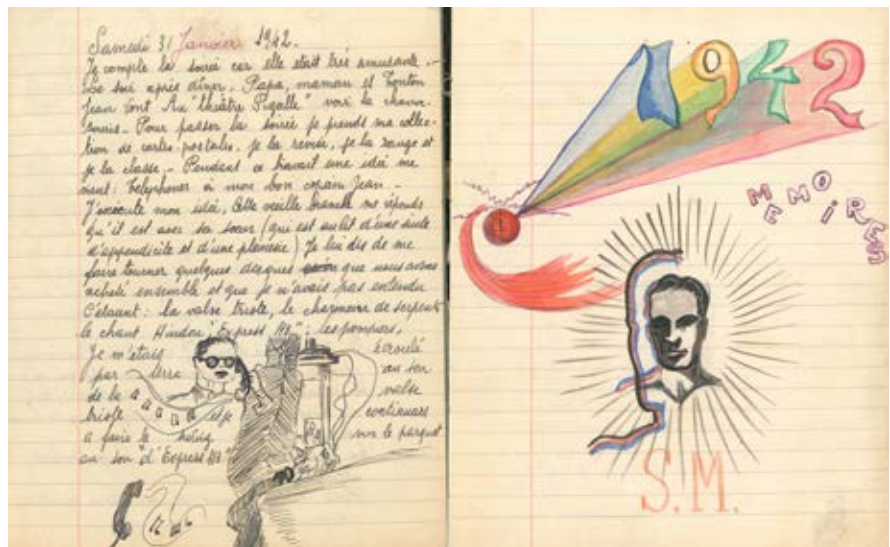 Samedi 31 Janvier 1942.
Je compte la soirée car elle etait très amusante.
Le soir après dîner. Papa, maman et Tonton
Jean vont Au "théâtre Pigalle" voir la chauve
souris. Pour passer la soirée je prends ma collec-
tion de cartes-postales. je la revoie, je la range et
je la classe. Pendant ce travail une idée me
vient: Telephoner à mon bon copain Jean.
J'exécute mon idée, Cette vieille branche me réponds
qu'il est avec sa sœur (qui est au lit d'une suite
d'appendicite et d'une pleurésie) Je lui dis de me
faire tourner quelques disques que nous avons
acheté ensemble et que je n'avais pas entendu
C'étaient: la valse triste, le charmeur de serpents
le chant Hindou, "Express", les pompiers,
Je m'étais écroulé
par terre au son
de la valse
triste et je continuais
a faire le sur le parquet
au son "d'Express"
1942
MEMOiRES
S.M.